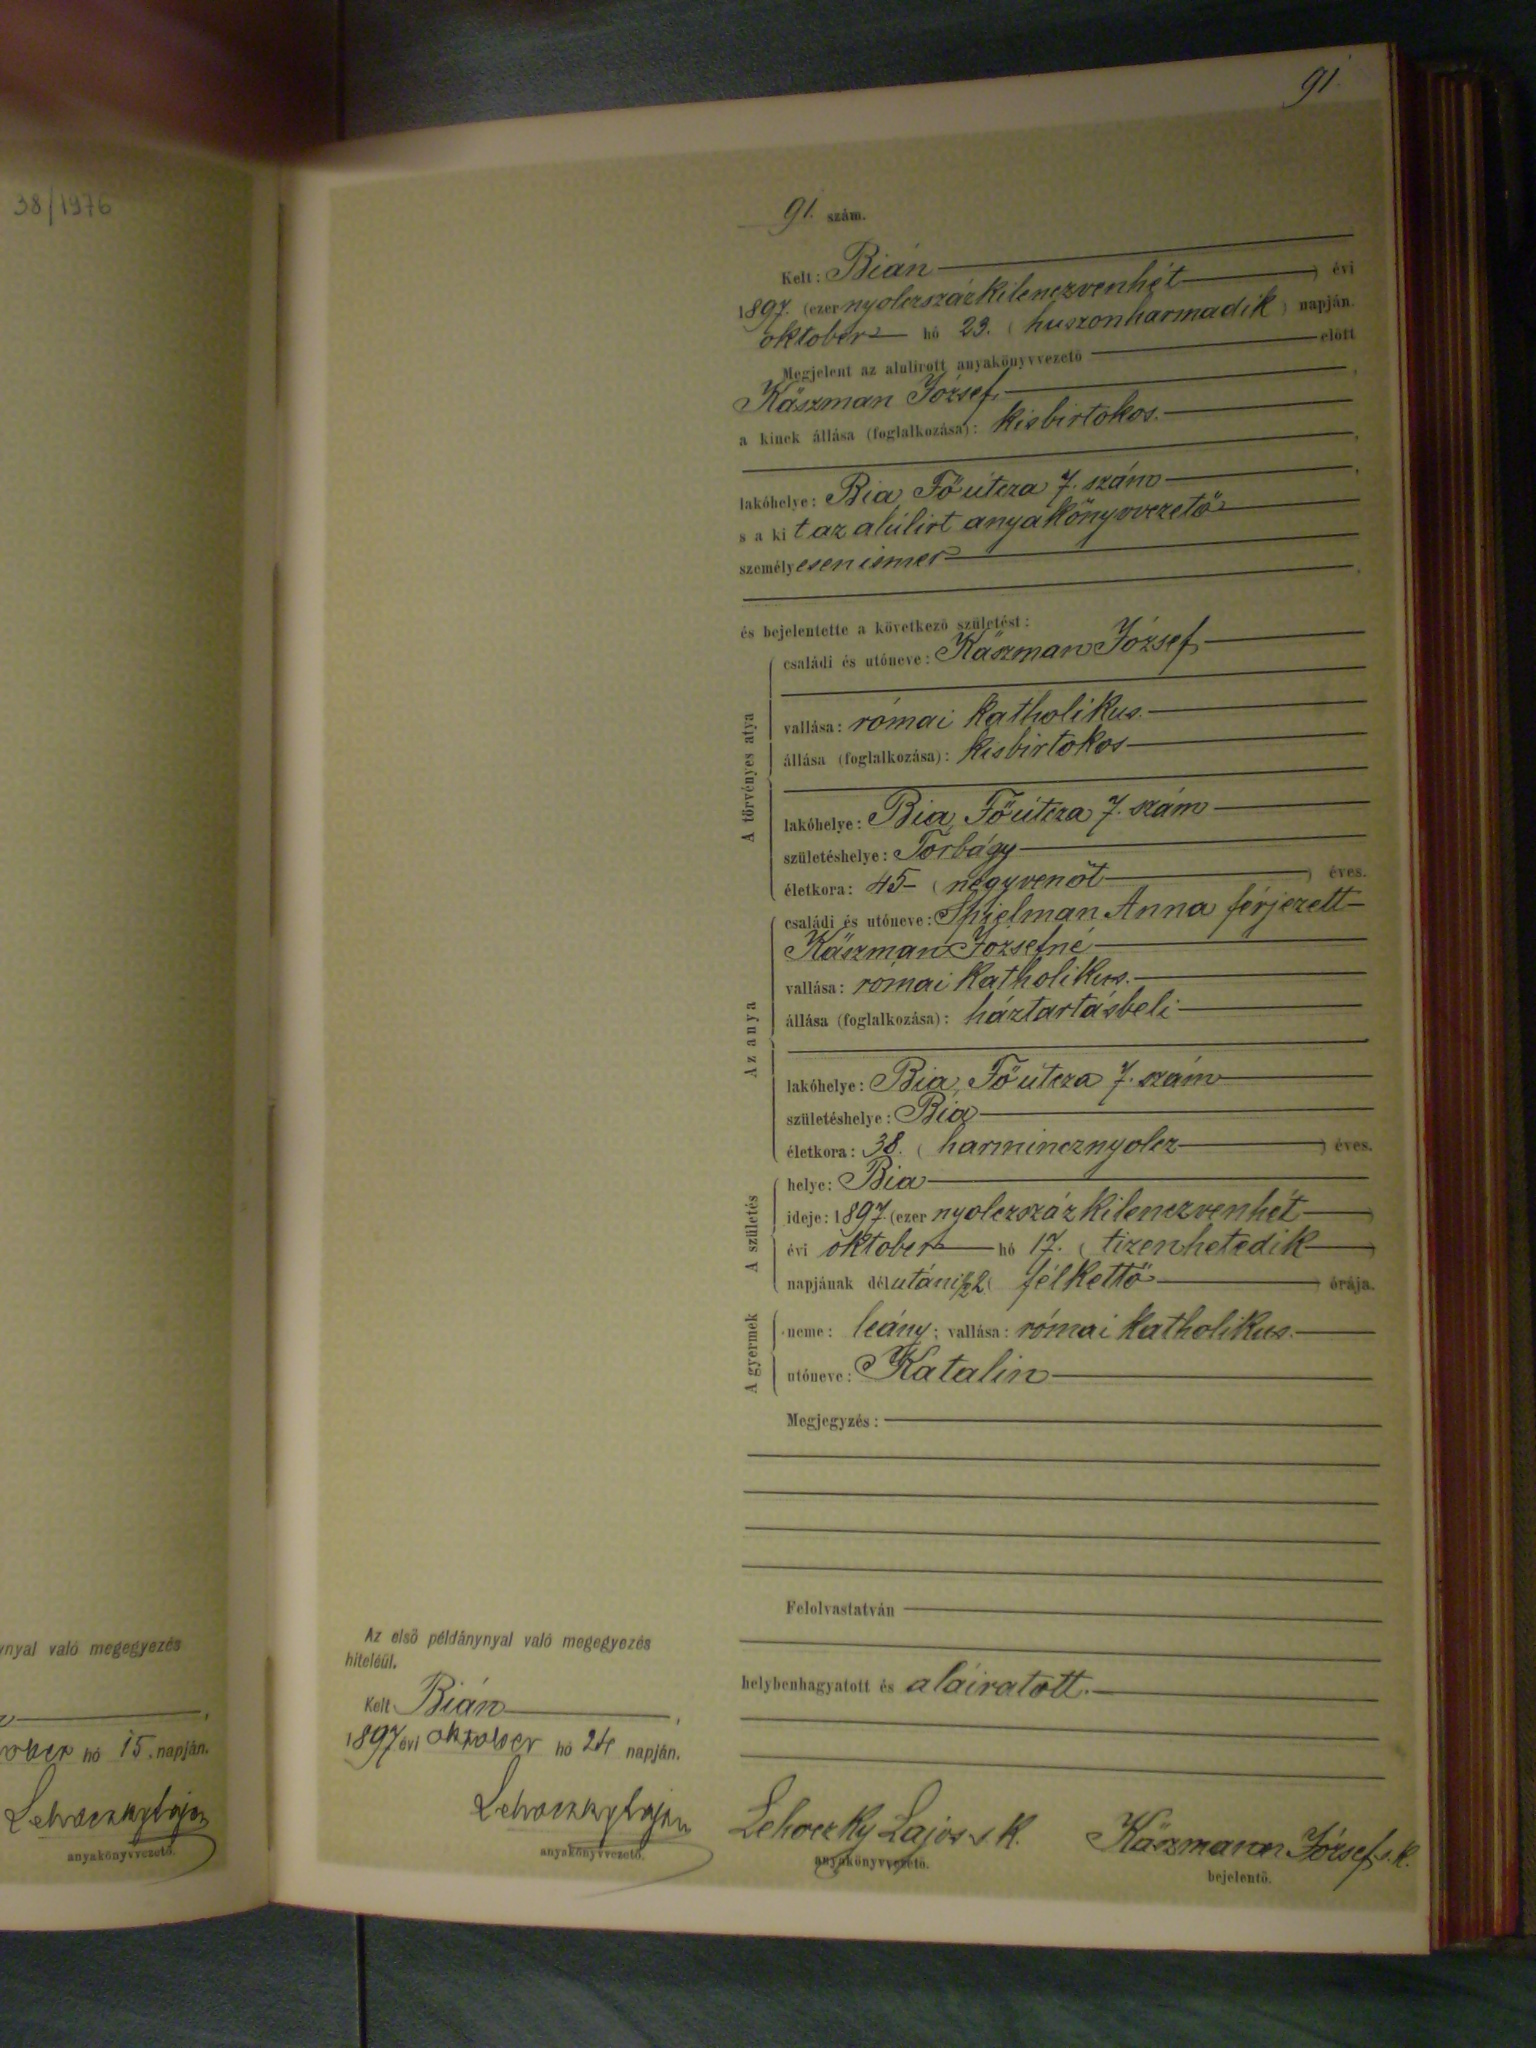 91.
38/1976
91. szám.
Kelt: Bián
1897. (ezer nyolczszázkilenczvenhét) évi
oktober hó 23. (huszonharmadik) napján.
Megjelent az alulirott anyakönyvvezető előtt
Käszman József,
a kinek állása (foglalkozása): kisbirtokos.
lakóhelye: Bia, Főútcza 7. szám
s a kit az alúlirt anyakönyvvezető
személyesen ismer
és bejelentette a következő születést:
A törvényes atya
családi és utóneve: Käszman József,
vallása: római katholikus.
állása (foglalkozása): kisbirtokos
lakóhelye: Bia, Főútcza 7. szám
születéshelye: Torbágy
életkora: 45 (negyvenöt) éves.
Az anya
családi és utóneve: Spielman Anna férjezett
Käszman Józsefné
vallása: római katholikus.
állása (foglalkozása): háztartásbeli
lakóhelye: Bia, Főútcza 7. szám
születéshelye: Bia
életkora: 38. (harmincznyolcz) éves.
A születés
helye: Bia
ideje: 1897. (ezer nyolczszázkilenczvenhét)
évi oktober hó 17. (tizenhetedik)
napjának délutáni ½2 (félkettő) órája.
A gyermek
neme: leány; vallása: római katholikus.
utóneve: Katalin
Megjegyzés:
Felolvastatván
helybenhagyatott és aláiratott.
Lehoczky Lajos s. k.
anyakönyvvezető.
Käszmann József s. k.
bejelentő.
Az első példánynyal való megegyezés
hiteléül.
Kelt Bián,
1897 évi oktober hó 24 napján.
Lehoczky Lajos
anyakönyvvezető.
ynyal való megegyezés
ober hó 15. napján.
Lehoczky Lajos
anyakönyvvezető.